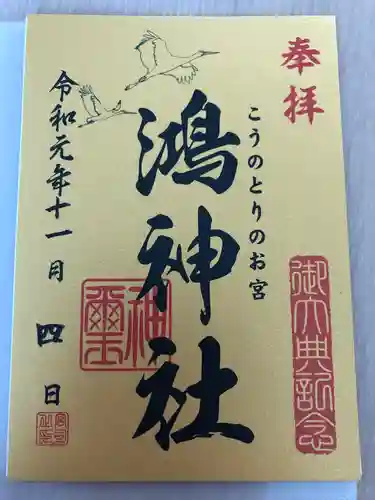 奉拝
こうのとりのお宮
鴻神社
令和元年十一月四日
御大典記念
神璽